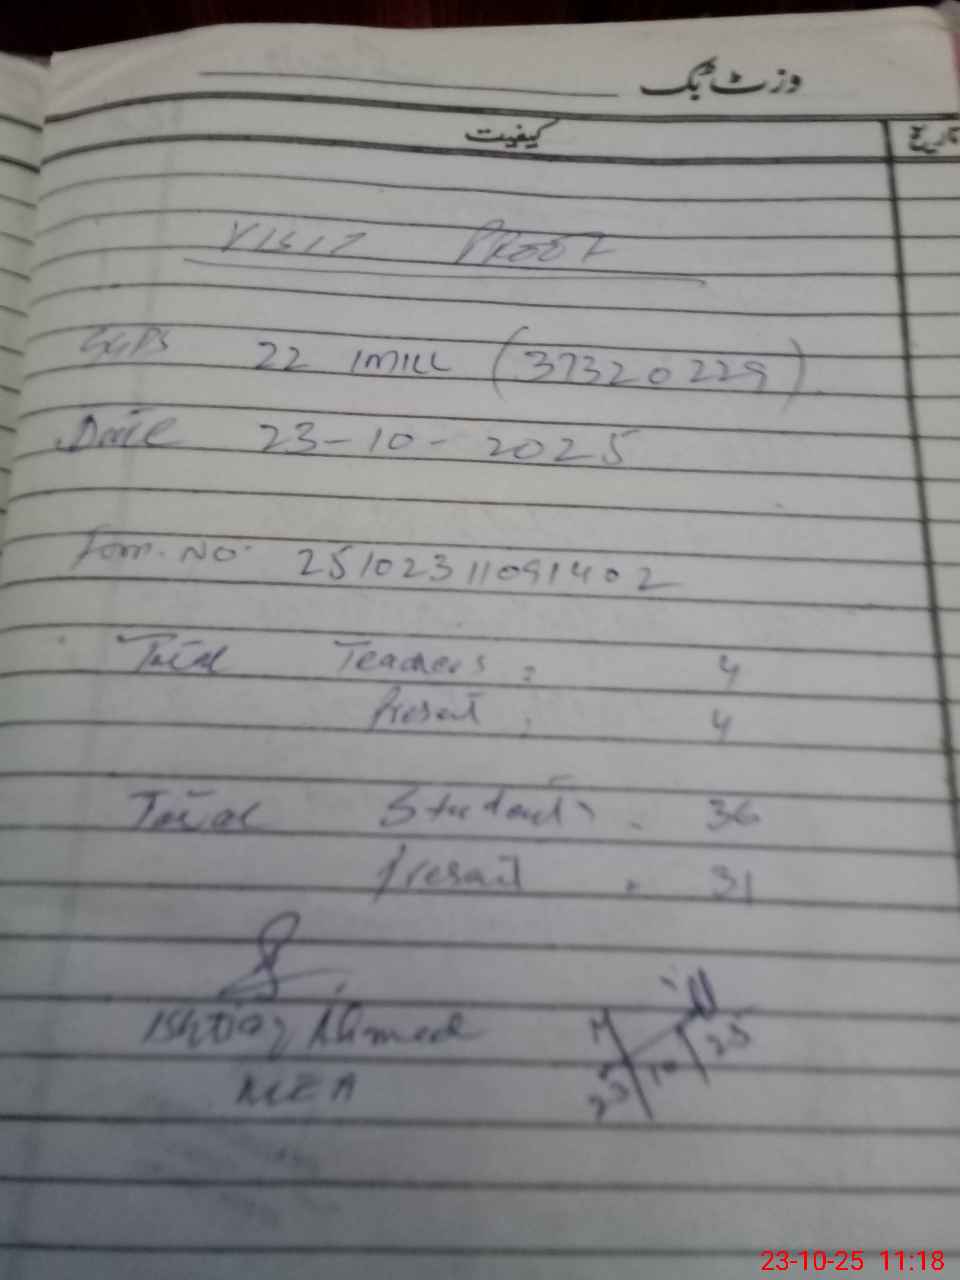 وزٹ بک
کیفیت
تاریخ
VISIT PROOF
GGPS 22 1MILL (37320229)
Date 23-10-2025
Form. NO. 25102311091402
Total Teachers : 4
Present : 4
Total Students . 36
Present . 31
Ishtiaq Ahmed
MEA
23 10 25
23-10-25 11:18